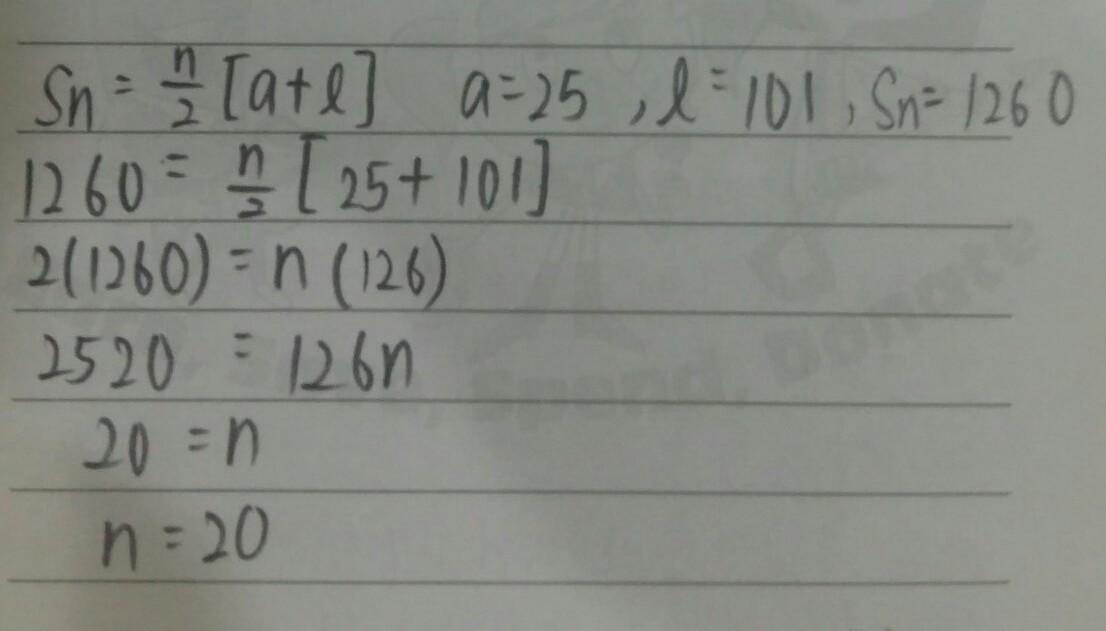 Sn = n/2 [a+l]   a=25 , l=101 , Sn=1260
1260 = n/2 [25+101]
2(1260) = n (126)
2520 = 126n
20 = n
n = 20
Spend, Donate